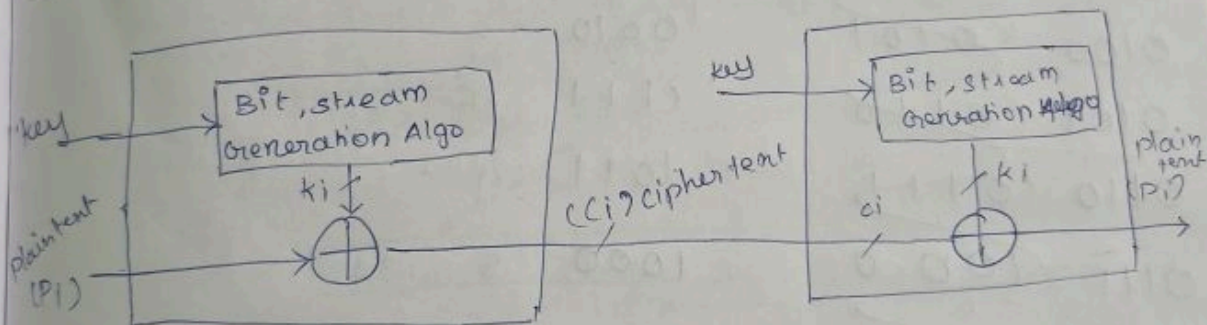 key
Bit, stream
Generation Algo
ki
plaintent
(Pi)
(Ci) ciphertent
key
Bit, stream
Genration Algo
ki
ci
plain
tent
(Pi)